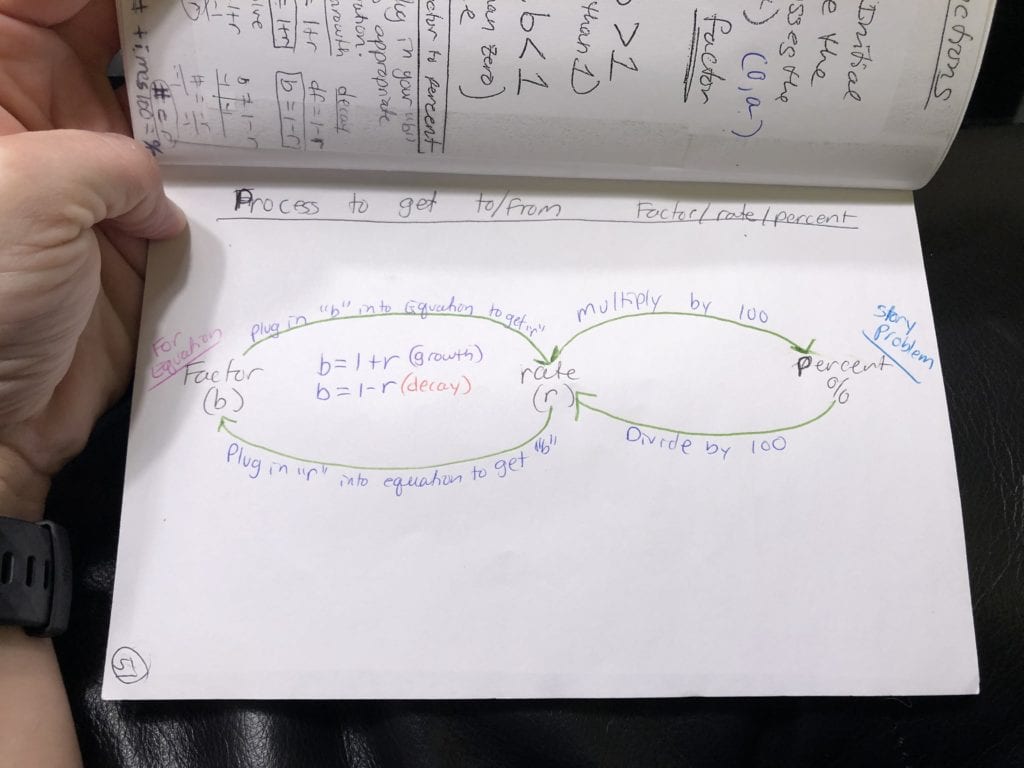 ections
Initial
e the
sses the
(0,a)
Factor
b > 1
than 1)
b < 1
han zero)
ctor to percent
lug in your "b"
appropriate
growth decay
= 1+r df = 1-r
= 1+r b = 1-r
1+r b = 1-r
# = -r
# times 100 = %
Process to get to/from Factor/rate/percent
Plug in "b" into Equation to get "r"
multiply by 100
For
Equation
Story
problem
b = 1+r (growth)
b = 1-r (decay)
Factor
(b)
rate
(r)
Percent
%
Plug in "r" into equation to get "b"
Divide by 100
51